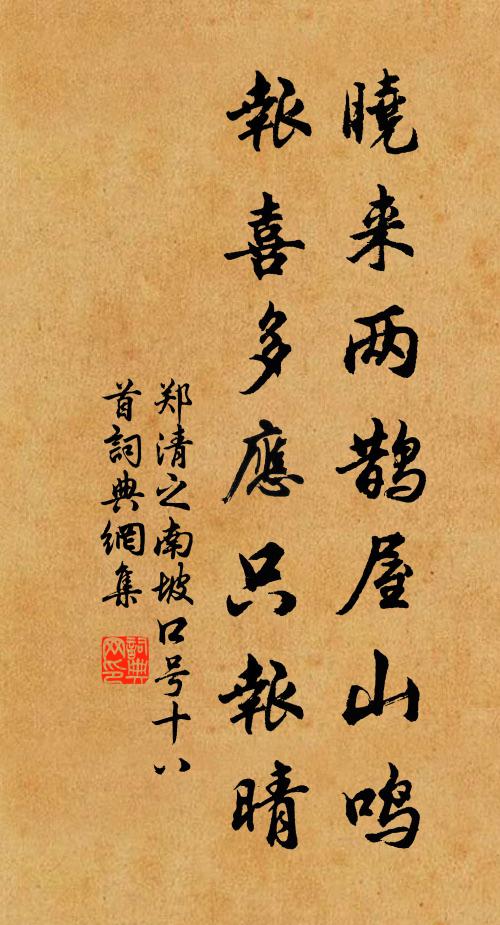 曉来两鹊屋山鸣
報喜多應只報晴
郑清之南坡口号十八
首詞典網集
詞典
网印